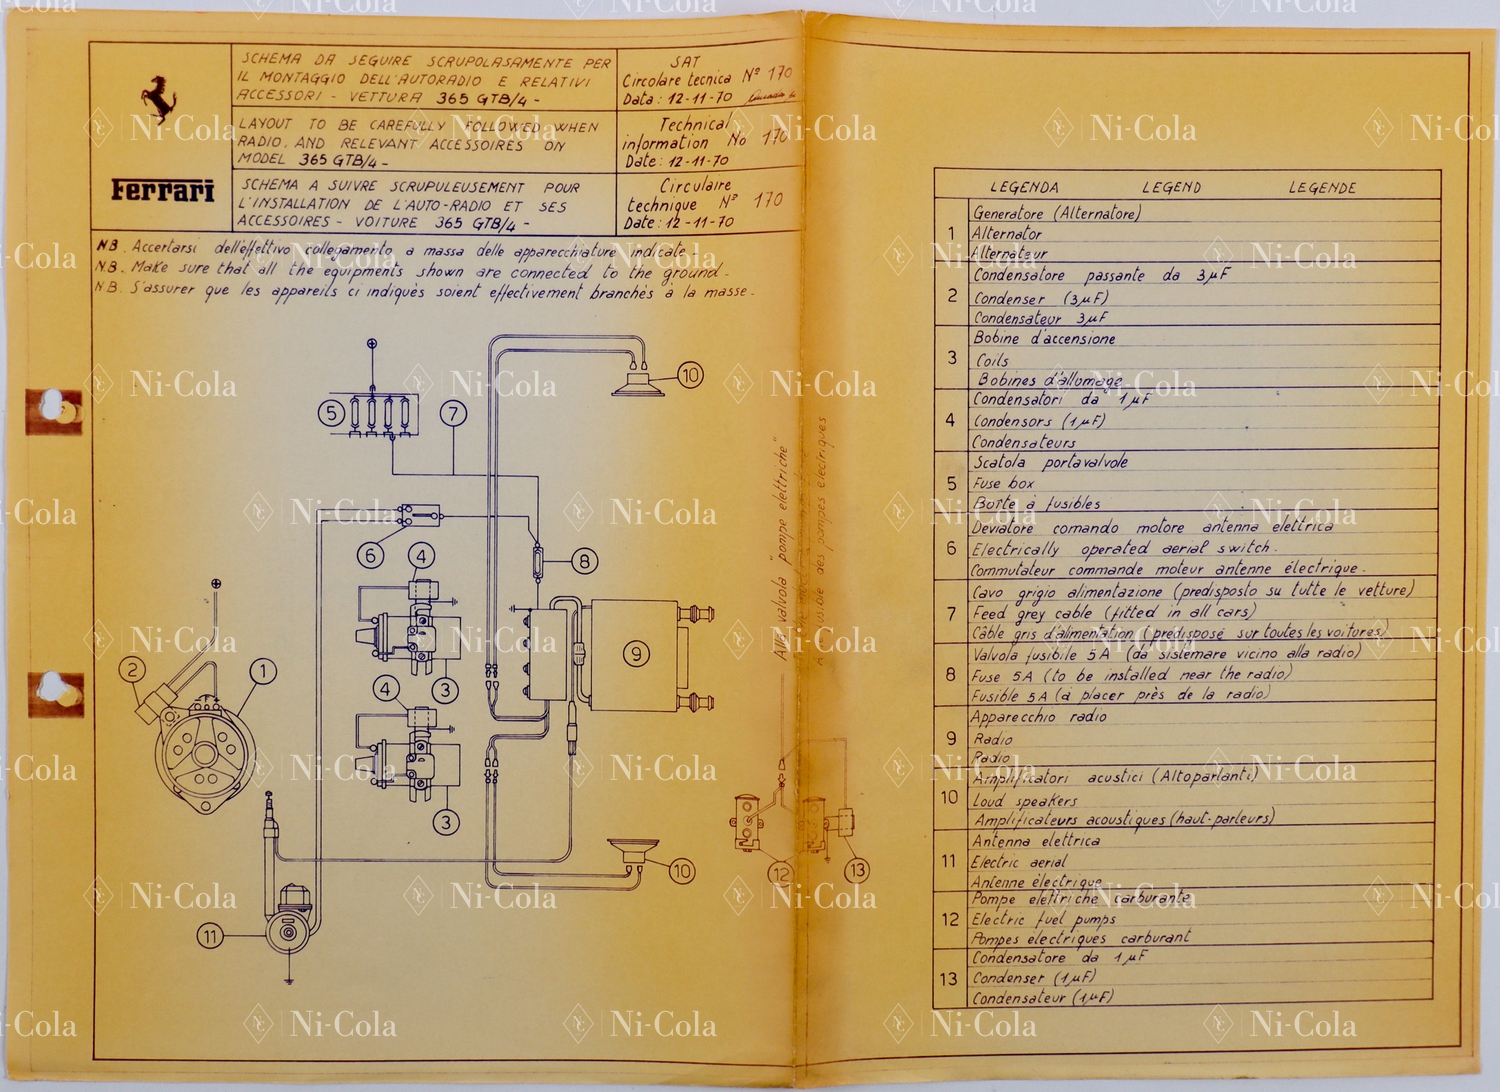 SCHEMA DA SEGUIRE SCRUPOLASAMENTE PER
IL MONTAGGIO DELL'AUTORADIO E RELATIVI
ACCESSORI - VETTURA 365 GTB/4 -
SAT
Circolare tecnica Nº 170
Data: 12-11-70
LAYOUT TO BE CAREFULLY FOLLOWED WHEN
RADIO, AND RELEVANT ACCESSOIRES ON
MODEL 365 GTB/4 -
Technical
information No 170
Date: 12-11-70
Ferrari
SCHEMA A SUIVRE SCRUPULEUSEMENT POUR
L'INSTALLATION DE L'AUTO-RADIO ET SES
ACCESSOIRES - VOITURE 365 GTB/4 -
Circulaire
technique Nº 170
Date: 12-11-70
N.B. Accertarsi dell'effettivo collegamento a massa delle apparecchiature indicate -
N.B. Make sure that all the equipments shown are connected to the ground -
N.B. S'assurer que les appareils ci indiqués soient effectivement branchés à la masse -
5
7
10
6
4
8
3
9
2
1
4
3
10
11
12
13
Alla valvola "pompe elettriche"
fusible des pompes électriques
LEGENDA LEGEND LEGENDE
1
Generatore (Alternatore)
Alternator
Alternateur
2
Condensatore passante da 3µF
Condenser (3µF)
Condensateur 3µF
3
Bobine d'accensione
Coils
Bobines d'allumage
4
Condensatori da 1µF
Condensors (1µF)
Condensateurs
5
Scatola portavalvole
Fuse box
Boîte à fusibles
6
Deviatore comando motore antenna elettrica
Electrically operated aerial switch.
Commutateur commande moteur antenne électrique.
7
Cavo grigio alimentazione (predisposto su tutte le vetture)
Feed grey cable (fitted in all cars)
Câble gris d'alimentation (prédisposé sur toutes les voitures)
8
Valvola fusibile 5A (da sistemare vicino alla radio)
Fuse 5A (to be installed near the radio)
Fusible 5A (à placer près de la radio)
9
Apparecchio radio
Radio
Radio
10
Amplificatori acustici (Altoparlanti)
Loud speakers
Amplificateurs acoustiques (haut-parleurs)
11
Antenna elettrica
Electric aerial
Antenne électrique
12
Pompe elettriche carburante
Electric fuel pumps
Pompes électriques carburant
13
Condensatore da 1µF
Condenser (1µF)
Condensateur (1µF)
Ni-Cola